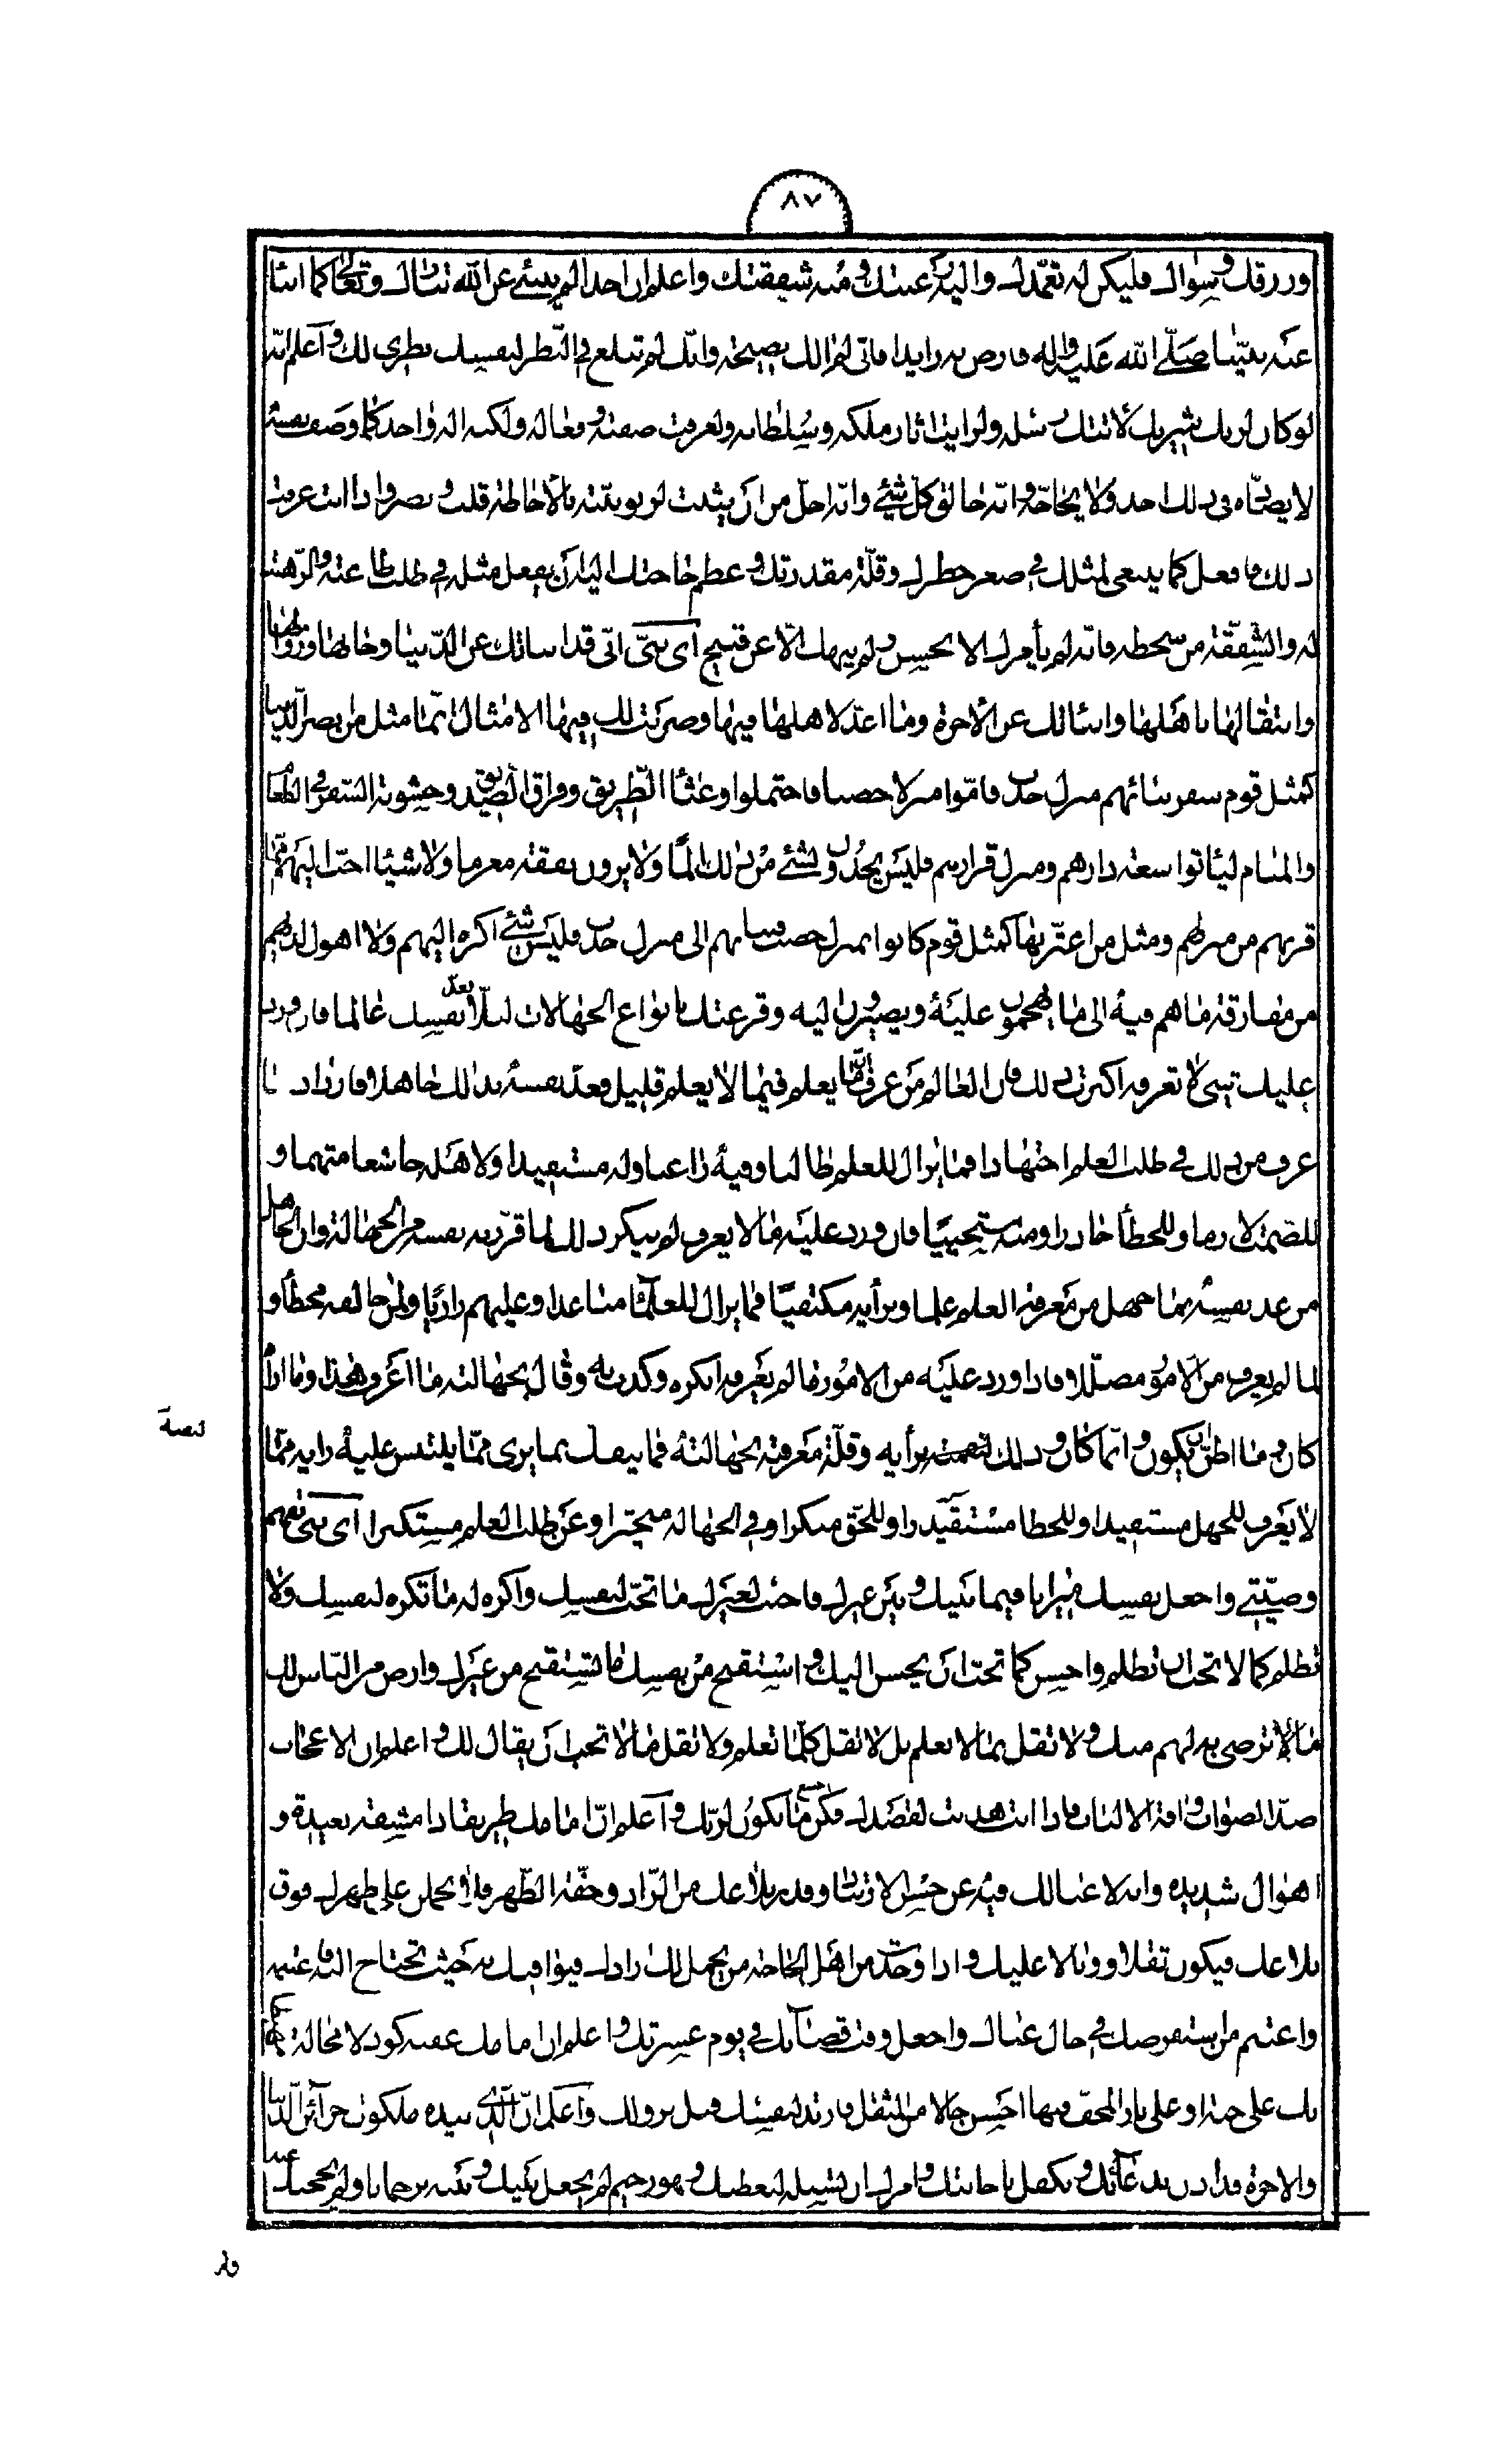 ٨٧
ورزقك وسواك فليكن له تعمّدك واليه رغبتك ومنه شفقتك واعلم ان احدا لم ينبئ عن الله تبارك وتعالى كما انبأ
عنه نبيّنا صلّى الله عليه واله فارض به رايدا فاني لم الك نصيحة وانك لم تبلغ في النّظر لنفسك نظري لك واعلم انّه
لو كان لربك شريك لاتتك رسله ولرايت اثار ملكه وسلطانه ولعرفت صفته وفعاله ولكنه اله واحد كما وصف نفسه
لا يضاده في ذلك احد ولا يحاجّه وانّه خالق كل شيئ وانّه اجلّ من ان يثبت لربوبيّته بالاحاطة قلب وبصر واذا انت عرفت
ذلك فافعل كما ينبغي لمثلك في صغر خطرك وقلّة مقدرتك وعظم حاجتك اليه ان يفعل مثله في طلب طاعته والرّهبة
له والشّفقة من سخطه فانّه لم يأمرك الا بحسن ولم ينهك الّا عن قبيح أي بنيّ انّي قد انباتك عن الدّنيا وحالها وزوالها
وانتقالها باهلها وانبأتك عن الاخرة وما اعدّ لاهلها فيها وضربت لك فيها الامثال انّما مثل من بصر الدّنيا
كمثل قوم سفر نبا بهم منزل جدب فامّوا منزلا خصبا فاحتملوا وعثاء الطّريق وفراق الصّديق وخشونة السّفر في الطّعام
والمنام ليأتوا سعة دارهم ومنزل قرارهم فليس يجدون لشئ من ذلك الما ولا يرون نفقة مغرما ولا شيئا احبّ اليهم ممّا
قربهم من منزلهم ومثل من اغترّ بها كمثل قوم كانوا بمنزل خصب فنبا بهم الى منزل جدب فليس شئ اكره اليهم ولا اهول لديهم
من مفارقة ما هم فيه الى ما يهجمون عليه ويصيرون اليه وقرعتك بانواع الجهالات لئلّا تعدّ نفسك عالما فان ورد
عليك شئ لا تعرفه اكبرت ذلك فان العالم من عرف انّ ما يعلم فيما لا يعلم قليل فعدّ نفسه بذلك جاهلا فازداد بما
عرف من ذلك في طلب العلم اجتهادا فما يزال للعلم طالبا وفيه راغبا وله مستفيدا ولاهله خاشعا متهما و
للصّمت لازما وللخطأ حاذرا ومنه مستحييا فان ورد عليه ما لا يعرف لم ينكر ذلك لما قرّر به نفسه من الجهالة وان الجاهل
من عد نفسه بما جهل من معرفة العلم علما وبرأيه مكتفيا فما يزال للعلماء مباعدا وعليهم زاريا ولمن خالفه مخطّأ و
لما لم يعرف من الامور مضلّلا فاذا ورد عليه من الامور ما لم يعرفه انكره وكذب به وقال بجهالته ما اعرف هذا وما اراه
كان وما اظنّ ان يكون وانّما كان ذلك لثقته برأيه وقلّة معرفته بجهالته فما ينفك بما يرى ممّا يلتبس عليه رايه ممّا
لا يعرف للجهل مستفيدا وللخطا مستقيدا وللحقّ منكرا وفي الجهالة متحيّرا وعن طلب العلم مستكبرا أي بنيّ تفهم
وصيّتي واجعل نفسك ميزانا فيما بينك وبين غيرك فاحبب لغيرك ما تحبّ لنفسك واكره له ما تكره لنفسك ولا
تظلم كما لا تحب ان تظلم واحسن كما تحبّ ان يحسن اليك واستقبح من نفسك ما تستقبح من غيرك وارض من النّاس لك
ما ترضى به لهم منك ولا تقل بما لا تعلم بل لا تقل كلّما تعلم ولا تقل ما لا تحب ان يقال لك واعلم ان الاعجاب
ضدّ الصواب وافة الالباب فاذا انت هديت لقصدك فكن اخشع ما تكون لربّك واعلم انّ امامك طريقا ذا مشقة بعيدة و
اهوال شديدة وانه لا غنا لك فيه عن حسن الارتياد وقدر بلاغك من الزّاد وخفّة الظّهر فلا تحملن على ظهرك فوق
بلاغك فيكون ثقلا ووبالا عليك واذا وجدت من اهل الحاجة من يحمل لك زادك فيوافيك به حيث تحتاج اليه فاغتنمه
واغتنم من استقرضك في حال غناك واجعل وقت قضائك في يوم عسرتك واعلم ان امامك عقبة كؤدا لا محالة
بك على جنة او على نار المخف فيها احسن حالا من المثقل فارتد لنفسك قبل نزولك واعلم انّ الذي بيده ملكوت خزائن الدّنيا
والاخرة قد اذن بدعائك وتكفل باجابتك وامرك ان تسئله ليعطيك وهو رحيم لم يجعل بينك وبينه ترجمانا ولم يحجبك عنه